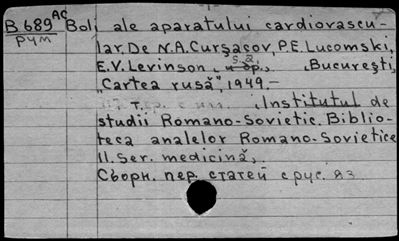 B 689 AC Boli ale aparatului cardiovascu-
Рум lar, De N.A. Curşacov, P.E. Lucomski,
E.V. Levinson, ş.a., Bucureşti,
„Cartea rusă”, 1949.-
Institutul de
studii Romano-Sovietic. Biblio-
teca analelor Romano-Sovietice
II. Ser. medicină,
Сборн. пер. статей с рус. яз.